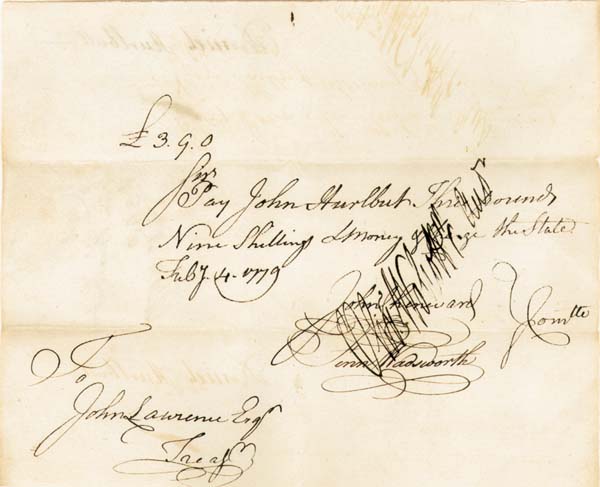 £3.9.0
Sir
Pay John Hurlbut Three Pounds
Nine Shillings LMoney & Charge the State
Feby. 4. 1779
John Chenward
Fenn Wadsworth
Comtte
To
John Lawrence Esqr
Treasr